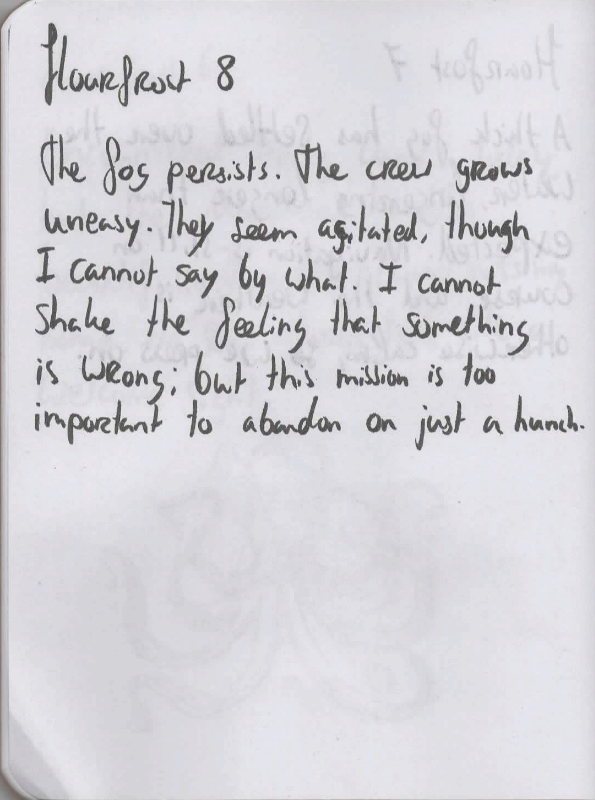 Hourfrost 8
The fog persists. The crew grows
uneasy. They seem agitated, though
I cannot say by what. I cannot
shake the feeling that something
is wrong; but this mission is too
important to abandon on just a hunch.